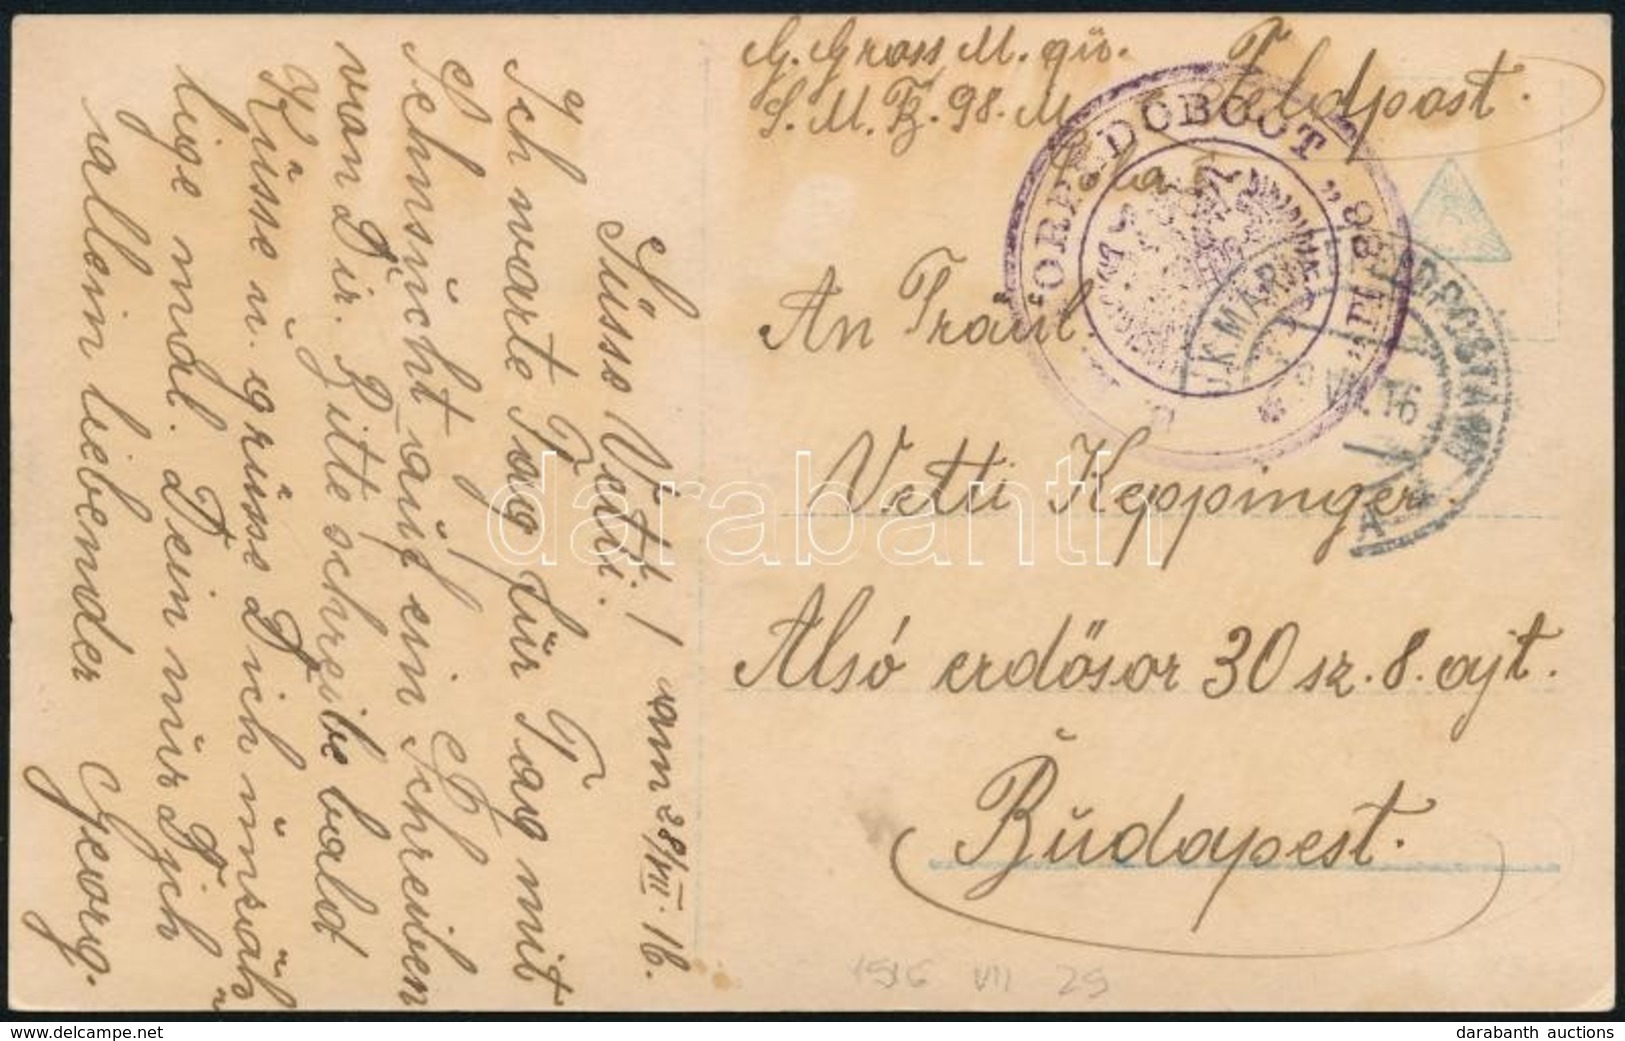 G. Gross M. qu.
S. M. Tb. 98. M.
Pola
Feldpost.
TORPEDOBOOT „98 M"
K.u.K. MARINEFELDPOSTAMT
VII. 16
A
An Fräul
Vetti Keppinger
Alsó erdősor 30 sz. 8. ajt.
Budapest.
1916 VII 29
am 28/VII. 16.
Süsse Vetti!
Ich warte Tag für Tag mit
Sehnsucht auf ein Schreiben
von Dir. Bitte schreibe bald
Küsse u. grüsse Dich unzäh-
lige mal. Dein nur Dich
allein liebender Georg.
darabanth
darabanth auctions